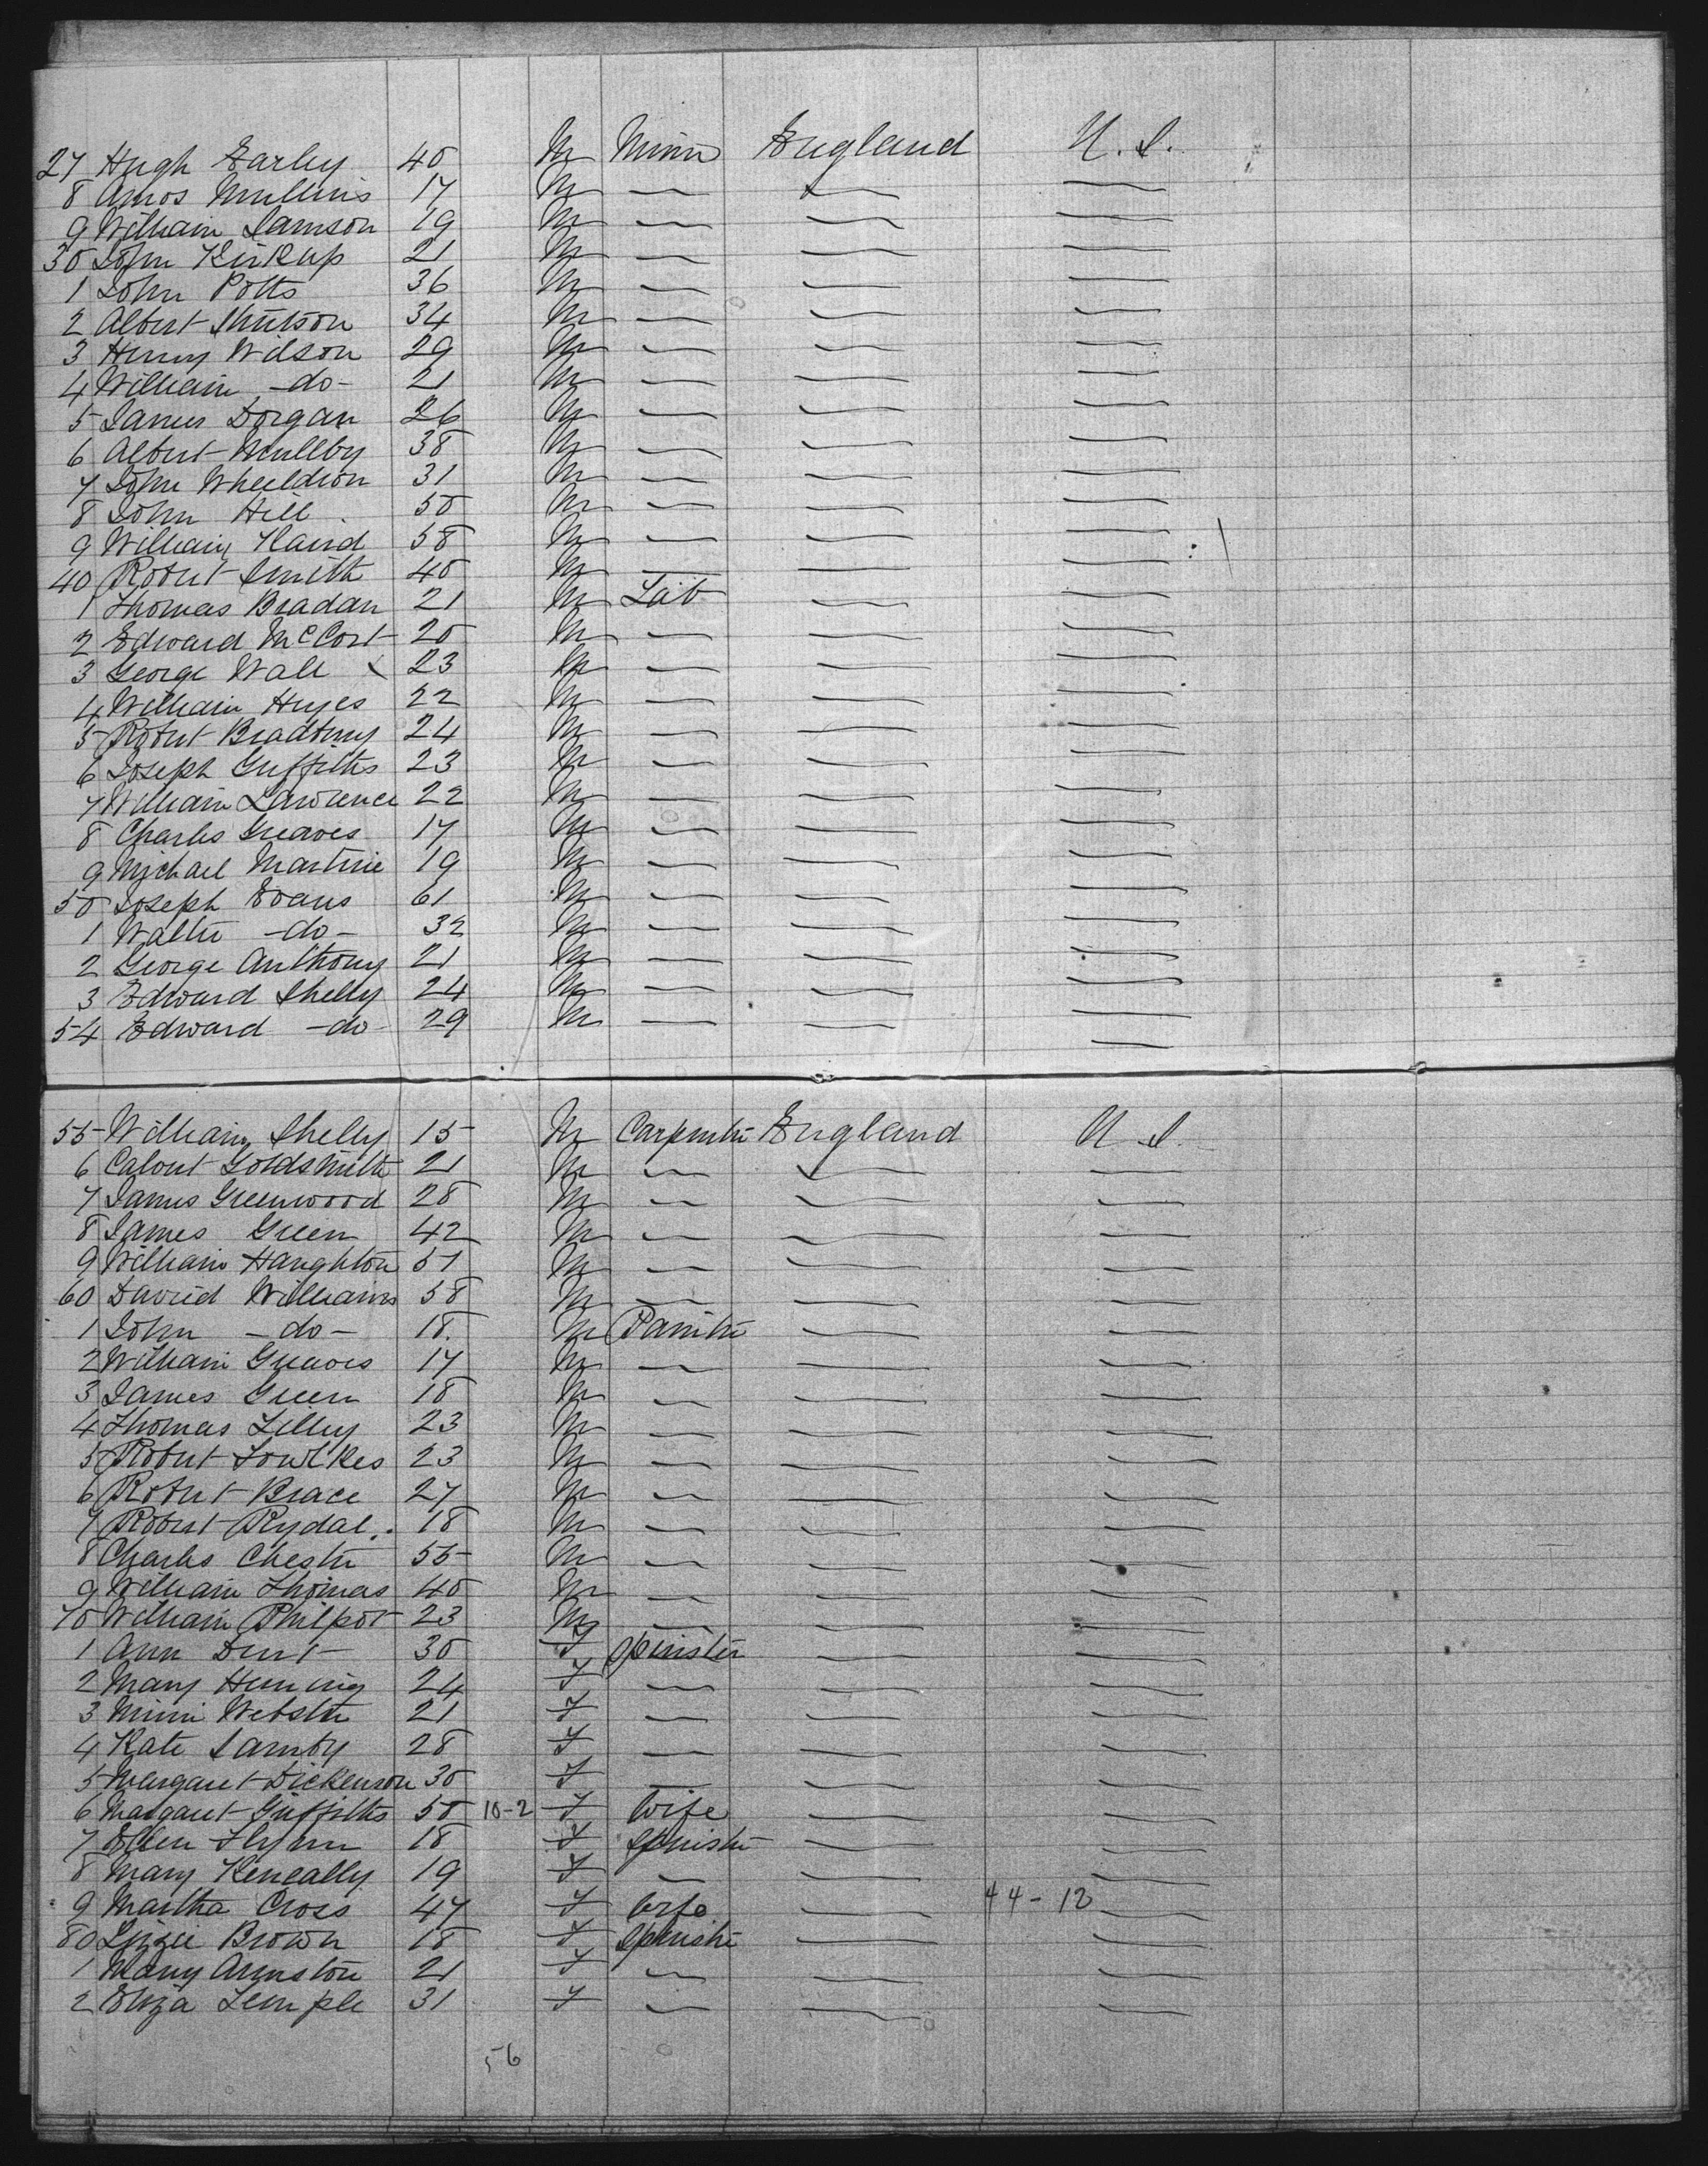 27 Hugh Earley 40 M Miner England U.S.
8 Amos Mullins 17 M — — —
9 William Samson 19 M — — —
30 John Kirkup 21 M — — —
1 John Potts 36 M — — —
2 Albert 34 M — — —
3 Henry Wilson 29 M — — —
4 William -do- 21 M — — —
5 James Dorgan 26 M — — —
6 Albert Mullby 38 M — — —
7 John Wheeldron 31 M — — —
8 John Hill 50 M — — —
9 William 58 M — — —
40 Robert Smith 40 M — — —
1 Thomas Bradan 21 M Lab — —
2 Edward McCort 20 M — — —
3 George Wall 23 M — — —
4 William Huyes 22 M — — —
5 Robert Bradbury 24 M — — —
6 Joseph Griffiths 23 M — — —
7 William Lawrence 22 M — — —
8 Charles Greaves 17 M — — —
9 Michael Martine 19 M — — —
50 Joseph Evans 61 M — — —
1 Walter -do- 32 M — — —
2 George Anthony 21 M — — —
3 Edward Shelly 24 M — — —
54 Edward -do- 29 M — — —
55 William Shelly 15 M Carpenter England U.S.
6 Goldsmith 21 M — — —
7 James Greenwood 28 M — — —
8 James Green 42 M — — —
9 William Haughton 51 M — — —
60 David Williams 58 M — — —
1 John -do- 18 M Painter — —
2 William Greaves 17 M — — —
3 James Green 18 M — — —
4 Thomas Lilley 23 M — — —
5 Robert Fowlkes 23 M — — —
6 Robert Brace 27 M — — —
7 Robert Rydal 18 M — — —
8 Charles Chester 55 M — — —
9 William Thomas 40 M — — —
70 William Philpot 23 M — — —
1 Ann Dent 30 F Spinster — —
2 Mary Hening 24 F — — —
3 Minni Webster 21 F — — —
4 Kate 28 F — — —
5 Margaret Dickenson 30 F — — —
6 Margaret Griffiths 50 10-2 F Wife — —
7 Ellen Flynn 18 F Spinster — —
8 Mary Keneally 19 F — — —
9 Martha Cross 47 F Wife — 44-12 —
80 Lizzie Brown 18 F Spinster — —
1 Mary Armston 21 F — — —
2 Eliza Temple 31 F — — —
56